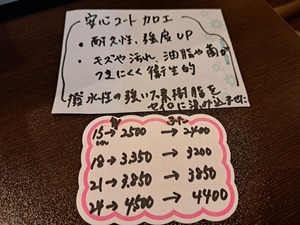 安心コート加工
・耐久性、強度UP
・キズや汚れ、油脂や菌が
つきにくく衛生的
撥水性の強い 樹脂を
に染み込ませ
15→2500 → 2400
18→3.350 → 3200
21→3.850 → 3850
24→4500 → 4400